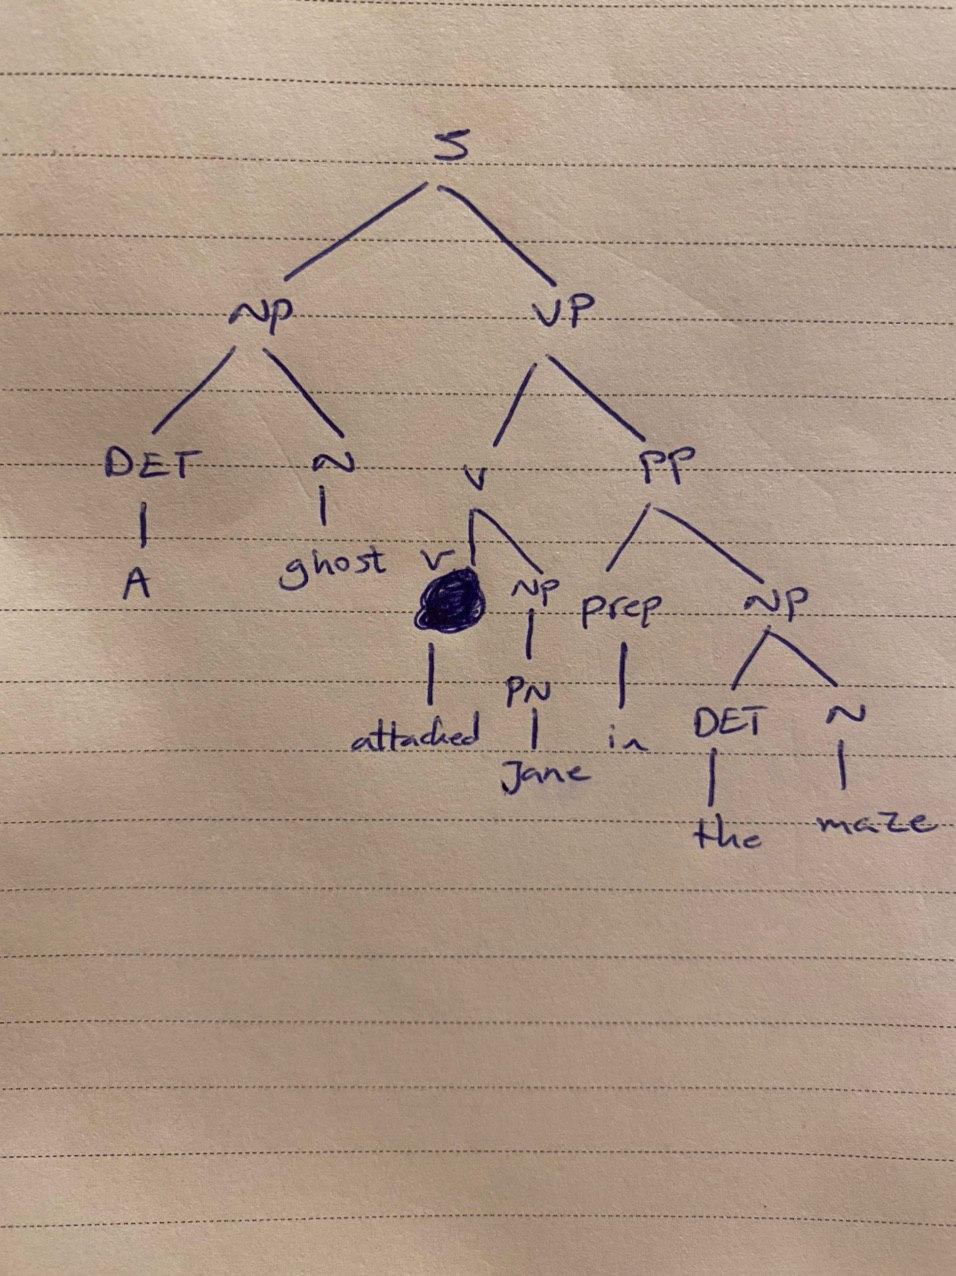 S
NP VP
DET N V PP
A ghost V NP prep NP
attacked PN in DET N
Jane the maze